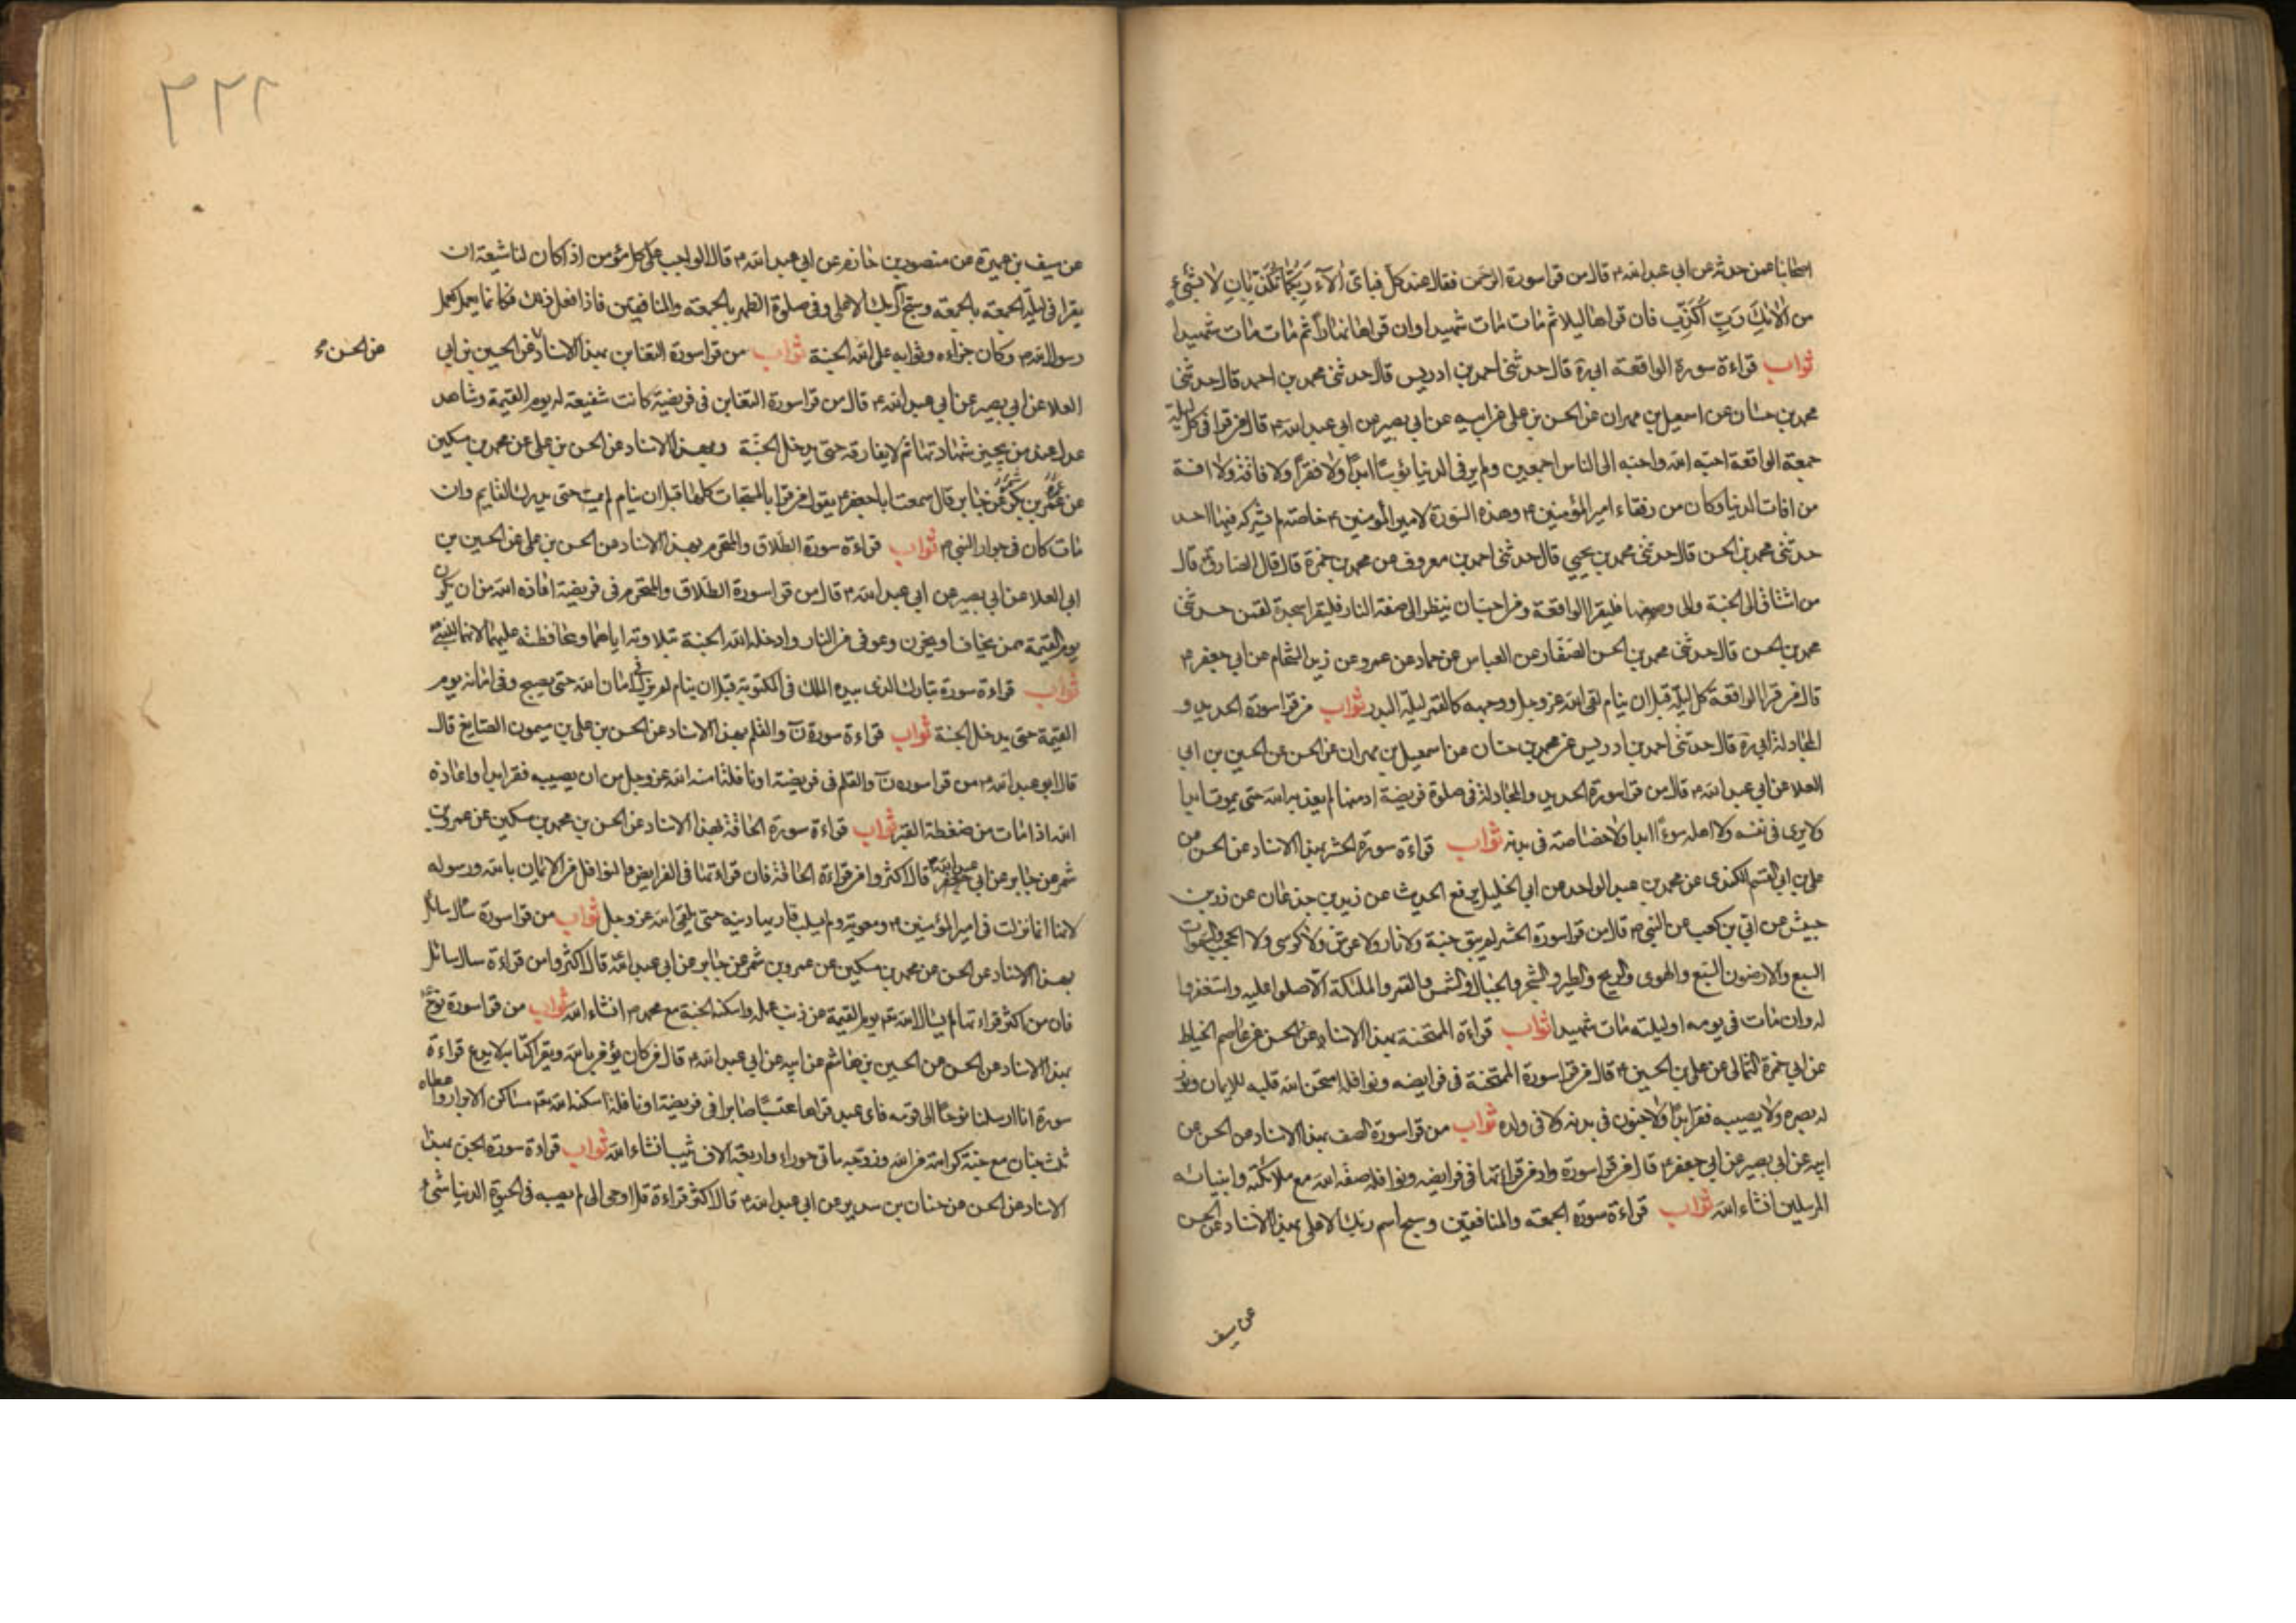 اصحابنا عمن حدثه عن ابي عبد الله ع قال من قرا سورة الرحمن فقال عند كل فباى الآء ربكما تكذبان لا بشيء
من الائك رب اكذب فان قراها ليلا ثم مات مات شهيدا وان قراها نهارا ثم مات مات شهيدا
ثواب قراءة سورة الواقعة ابى ره قال حدثنى احمد بن ادريس قال حدثنى محمد بن احمد قال حدثنى
محمد بن حسان عن اسمعيل بن مهران عن الحسن بن على عن ابيه عن ابي بصير عن ابي عبد الله ع قال من قرا فى كل ليلة
جمعة الواقعة احبه الله واحبه الى الناس اجمعين ولم ير فى الدنيا بؤسا ابدا ولا فقرا ولا فاقة ولا افة
من افات الدنيا وكان من رفقاء امير المؤمنين ع وهذه السورة لامير المؤمنين ع خاصته لم يشركه فيها احد
حدثنى محمد بن الحسن قال حدثنى محمد بن يحيى قال حدثنى احمد بن معروف عن محمد بن حمزة قال قال الصادق ع قال
من اشتاق الى الجنة والى وصفها فليقرا الواقعة ومن احب ان ينظر الى صفة النار فليقرا سجدة لقمن حدثنى
محمد بن الحسن قال حدثنى محمد بن الحسن الصفار عن العباس عن حماد عن عمرو عن زيد الشحام عن ابي جعفر ع
قال من قرا الواقعة كل ليلة قبل ان ينام لقى الله عز وجل ووجهه كالقمر ليلة البدر ثواب من قرا سورة الحديد و
المجادلة ابى ره قال حدثنى احمد بن ادريس عن محمد بن حسان عن اسمعيل بن مهران عن الحسن عن الحسين بن ابي
العلا عن ابي عبد الله ع قال من قرا سورة الحديد والمجادلة فى صلوة فريضة ادمنها لم يعذبه الله حتى يموت ابدا
ولا يرى فى نفسه ولا اهله سوءا ابدا ولا خصاصة فى بدنه ثواب قراءة سورة الحشر بهذا الاسناد عن الحسن عن
على بن ابي القسم الكندى عن محمد بن عبد الواحد عن ابي الخليل يرفع الحديث عن زيد بن جذعان عن زر بن
حبيش عن ابى بن كعب عن النبى ص قال من قرا سورة الحشر لم يبق جنة ولا نار ولا عرش ولا كرسى ولا الحجب والسموات
السبع والارضون السبع والهوى والريح والطير والشجر والجبال والشمس والقمر والملئكة الا صلوا عليه واستغفروا
له وان مات فى يومه او ليلته مات شهيدا ثواب قراءة الممتحنة بهذا الاسناد عن الحسن عن عاصم الخياط
عن ابي حمزة الثمالى عن على بن الحسين ع قال من قرا سورة الممتحنة فى فرايضه ونوافله امتحن الله قلبه للايمان ونور
له بصره ولا يصيبه فقر ابدا ولا جنون فى بدنه ولا فى ولده ثواب من قرا سورة الصف بهذا الاسناد عن الحسن عن
ابيه عن ابي بصير عن ابي جعفر ع قال من قرا سورة وادمن قراءتها فى فرايضه ونوافله صفه الله مع ملائكته وانبيائه
المرسلين انشاء الله ثواب قراءة سورة الجمعه والمنافقين وسبح اسم ربك الاعلى بهذا الاسناد عن الحسن
عن سيف
٣٢٢
عن سيف بن عميرة عن منصور بن حازم عن ابي عبد الله ع قال الواجب على كل مؤمن اذا كان لنا شيعة ان
يقرا فى ليلة الجمعه بالجمعه وسبح اسم ربك الاعلى وفى صلوة الظهر بالجمعه والمنافقين فاذا فعل ذلك فكانما يعمل كعمل
رسول الله ص وكان جزاءه وثوابه على الله الجنة ثواب من قرا سورة التغابن بهذا الاسناد عن الحسين بن ابي
عن الحسن صح
العلا عن ابي بصير عن ابي عبد الله ع قال من قرا سورة التغابن فى فريضة كانت شفيعة له يوم القيمة وشاهد
عدل عند من يجيز شهادتها ثم لا يفارقه حتى يدخل الجنة وبهذا الاسناد عن الحسن بن على عن محمد بن سكين
عن عمرو بن شمر عن جابر قال سمعت ابا جعفر ع يقول من قرا بالمسبحات كلها قبل ان ينام لم يمت حتى يدرك القايم وان
مات كان فى جوار النبى ص ثواب قراءة سورة الطلاق والتحريم بهذا الاسناد عن الحسن بن على عن الحسين بن
ابي العلا عن ابي بصير عن ابي عبد الله ع قال من قرا سورة الطلاق والتحريم فى فريضة اعاذه الله من ان يكون
يوم القيمة ممن يخاف او يحزن وعوفى من النار وادخله الله الجنة بتلاوته اياهما ومحافظته عليهما لانهما للنبى ص
ثواب قراءة سورة تبارك الذى بيده الملك فى المكتوبة قبل ان ينام لم يزل فى امان الله حتى يصبح وفى امانه يوم
القيمة حتى يدخل الجنة ثواب قراءة سورة ن والقلم بهذا الاسناد عن الحسن بن على بن ميمون الصايغ قال
قال ابو عبد الله ع من قرا سوره ن والقلم فى فريضة او نافلة امنه الله عز وجل من ان يصيبه فقر ابدا واعاذه
الله اذا مات من ضغطة القبر ثواب قراءة سورة الحاقة بهذا الاسناد عن الحسن بن محمد بن سكين عن عمرو بن
شمر عن جابر عن ابي عبد الله ع قال اكثروا من قراءة الحاقة فان قراءتها فى الفرايض والنوافل من الايمان بالله ورسوله
لانها انما نزلت فى امير المؤمنين ع ومعوية ولم يسلب قاريها دينه حتى يلقى الله عز وجل ثواب من قرا سورة سال سائل
بهذا الاسناد عن الحسن عن محمد بن سكين عن عمرو بن شمر عن جابر عن ابي عبد الله قال اكثروا من قراءة سال سائل
فان من اكثر قراءتها لم يسال الله تعه يوم القيمة عن ذنب عمله واسكنه الجنة مع محمد ص انشاء الله ثواب من قرا سورة نوح
بهذا الاسناد عن الحسن عن الحسين بن هاشم عن ابيه عن ابي عبد الله ع قال من كان يؤمن بالله ويقرا كتابه لا يدع قراءة
سورة انا ارسلنا نوحا الى قومه فاى عبد قراها محتسبا صابرا فى فريضة او نافلة اسكنه الله تعه مساكن الابرار واعطاه
ثلث جنان مع جنته كرامة من الله وزوجه ماتى حوراء واربعة الاف ثيب انشاء الله ثواب قراءة سورة الجن بهذا
الاسناد عن الحسن عن حنان بن سدير عن ابي عبد الله ع قال اكثر قراءة قل اوحى الى لم يصبه فى الحيوة الدنيا شيء